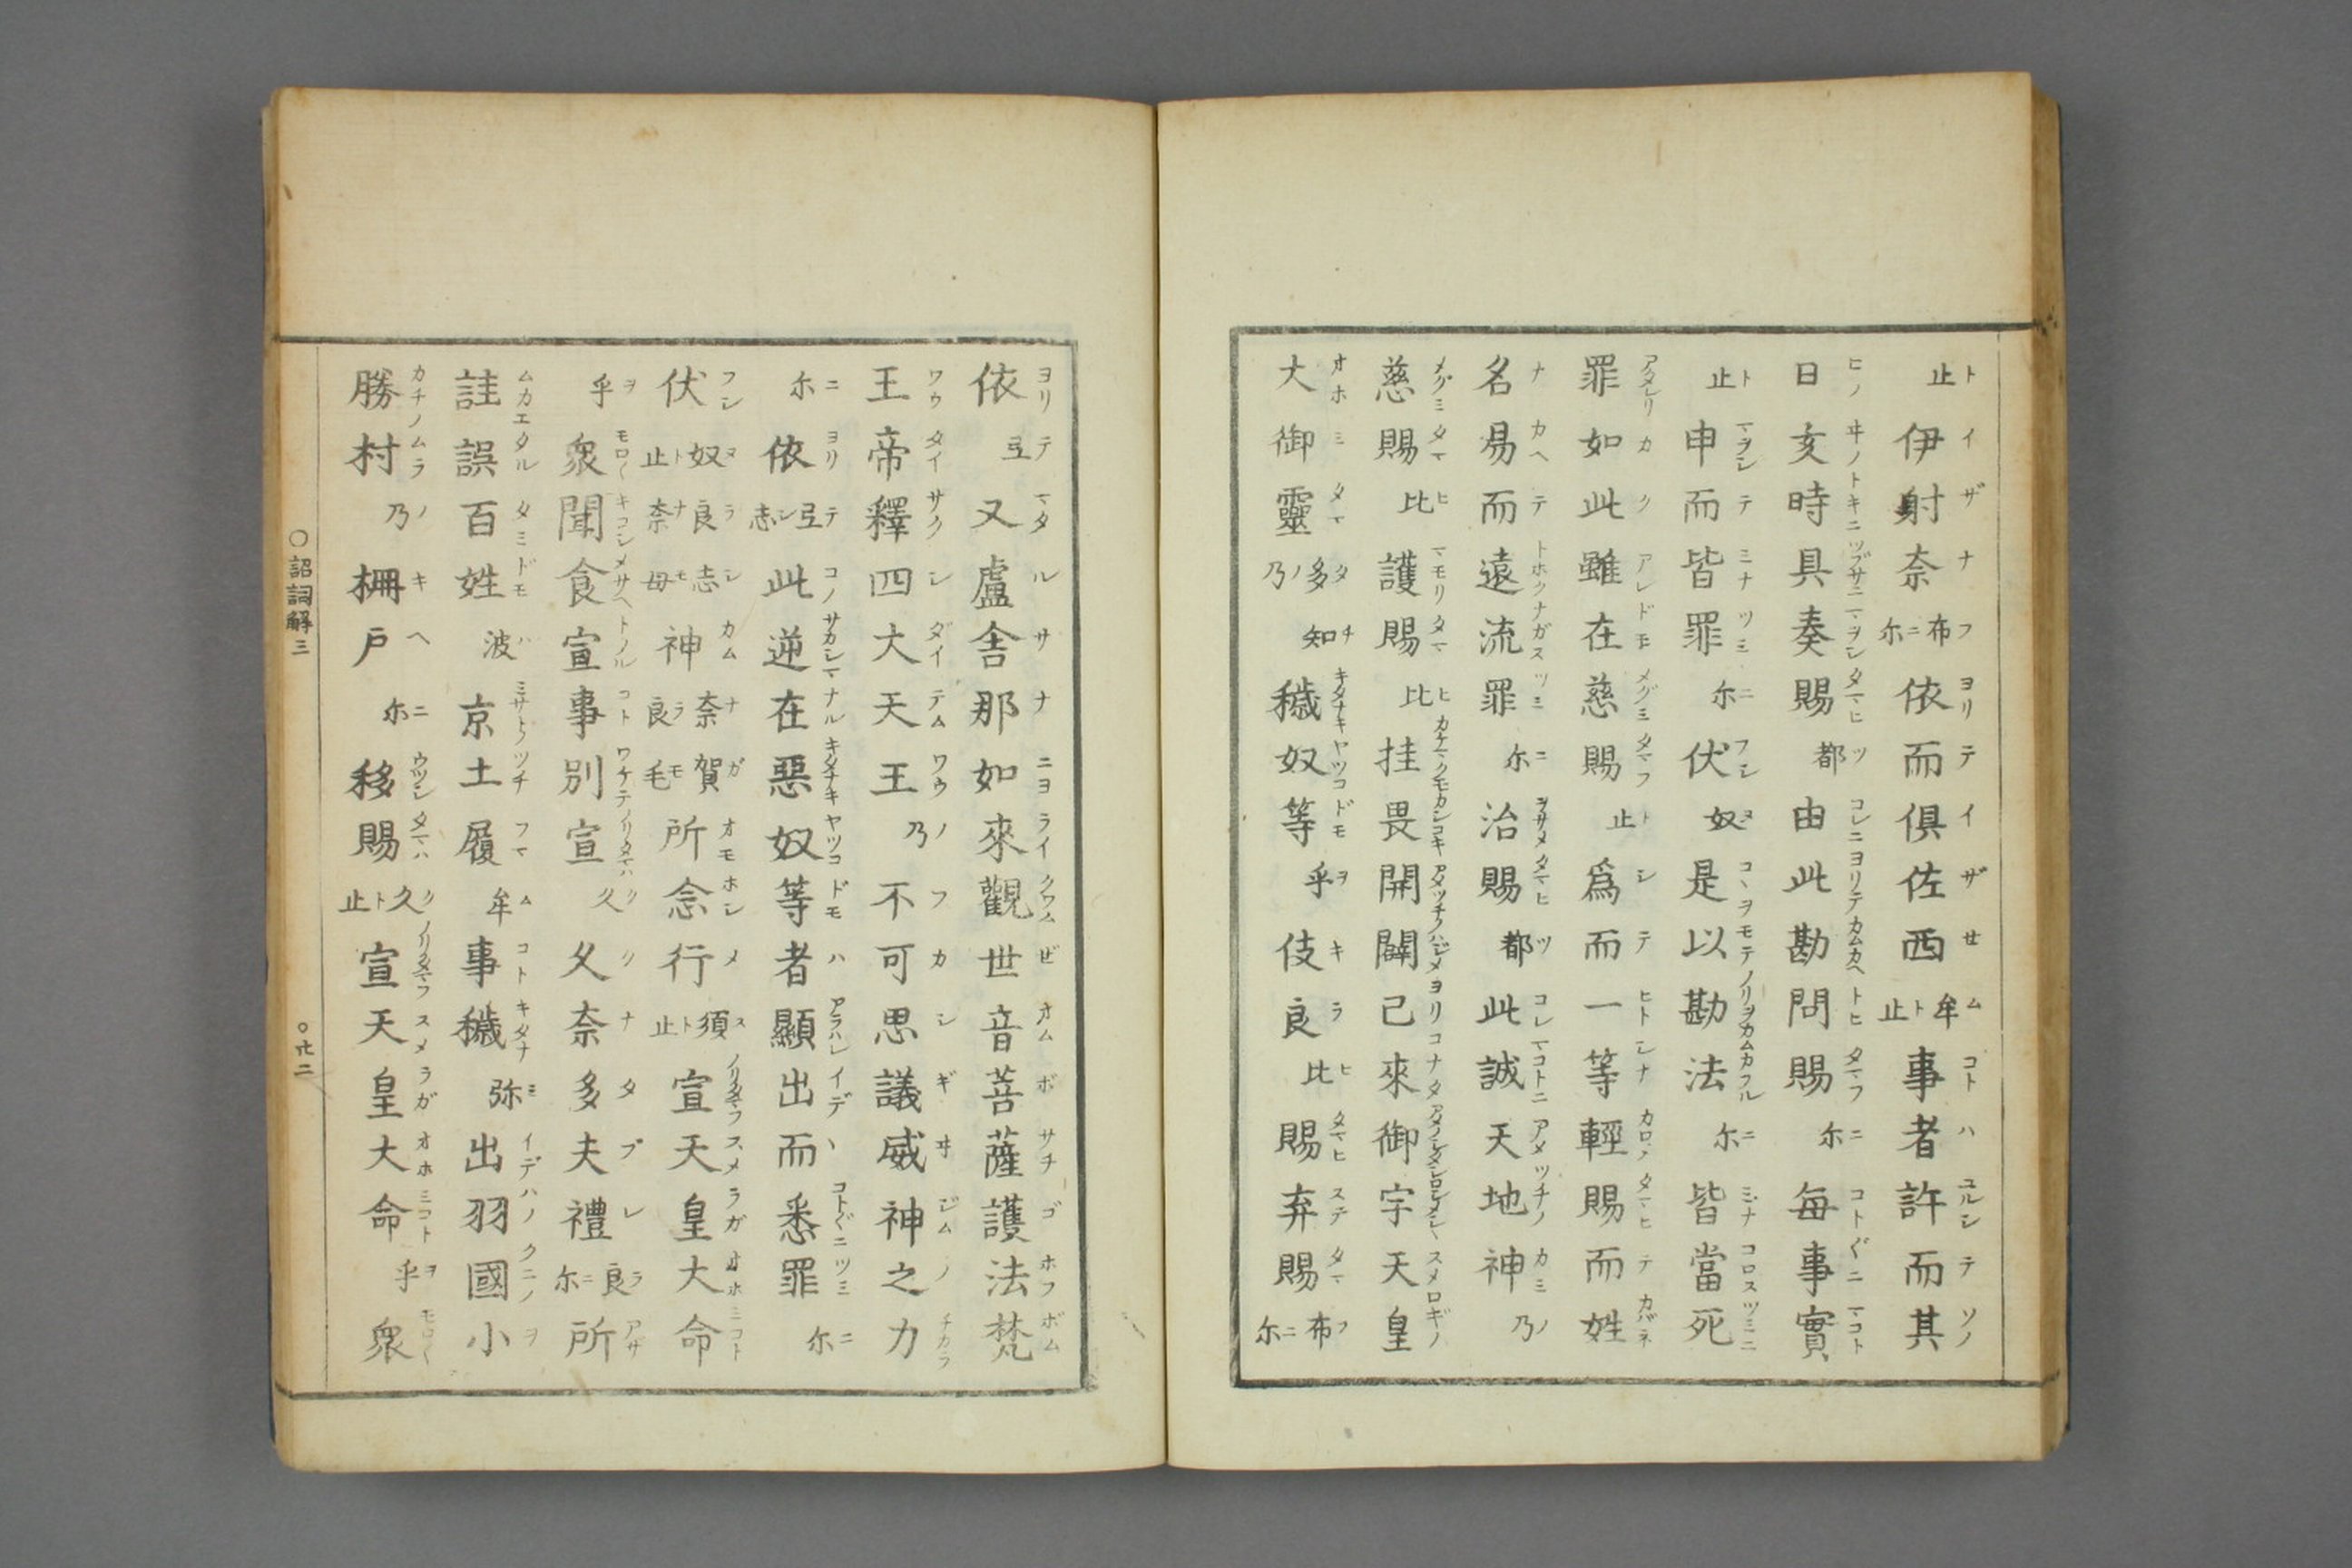 止伊射奈布尓依而俱佐西牟止事者許而其
日亥時具奏賜都由此勘問賜尓每事實
止申而皆罪尓伏奴是以勘法尓皆當死
罪如此雖在慈賜止爲而一等輕賜而姓
名易而遠流罪尓治賜都此誠天地神乃
慈賜比護賜比挂畏開闢已來御宇天皇
大御靈多知乃穢奴等乎伎良比賜弃賜布尓
依弖又盧舍那如來觀世音菩薩護法梵
王帝釋四大天王乃不可思議威神之力
尓依弖志此逆在惡奴等者顯出而悉罪尓
伏奴良志止奈母神奈賀良毛所念行須止宣天皇大命
乎衆聞食宣事別宣久久奈多夫禮良尓所
詿誤百姓波京土履牟事穢弥出羽國小
勝村乃柵戸尓移賜久止宣天皇大命乎衆
○詔詞解三
○廿二